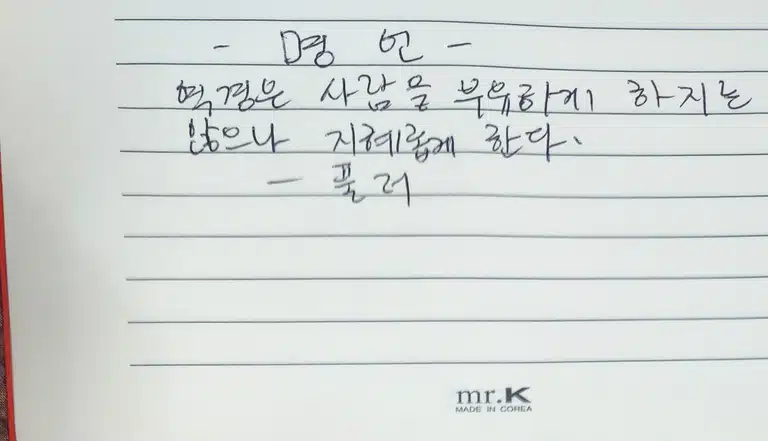 - 명 언 -
역경은 사람을 부유하게 하지는
않으나 지혜롭게 한다.
- 풀러
mr.K
MADE IN COREA